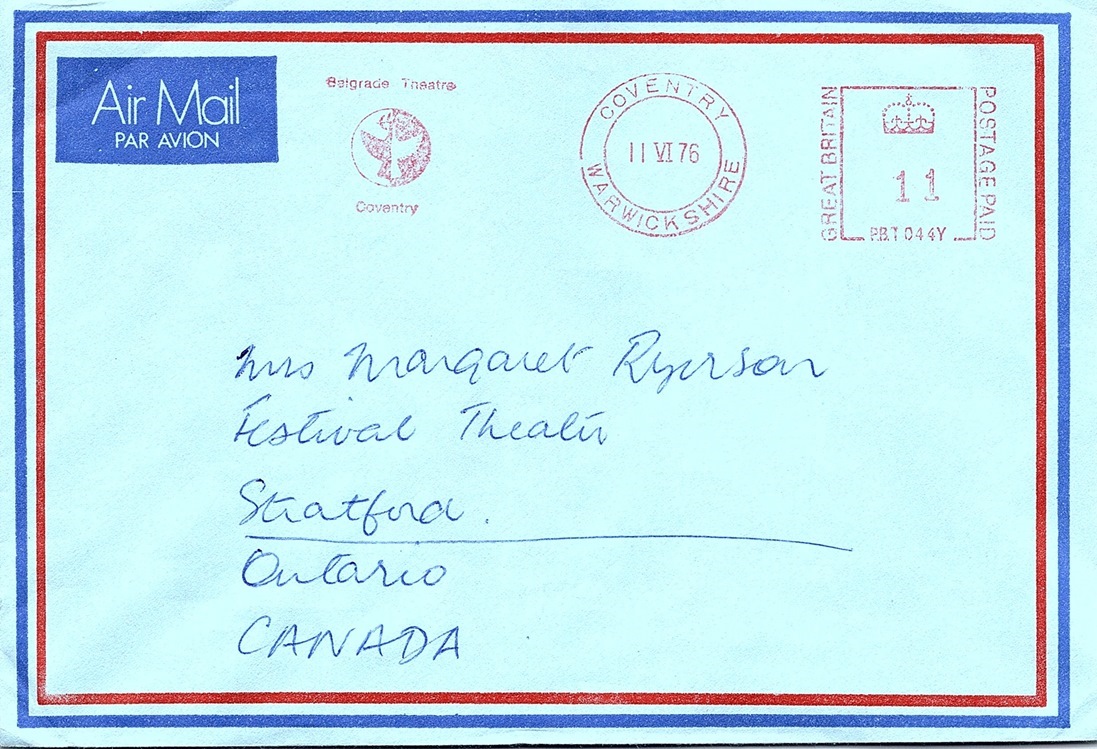 Air Mail
PAR AVION
Belgrade Theatre
Coventry
COVENTRY
11 VI 76
WARWICKSHIRE
GREAT BRITAIN
11
P.B.T 044Y
POSTAGE PAID
Mrs Margaret Ryerson
Festival Theatre
Stratford.
Ontario
CANADA